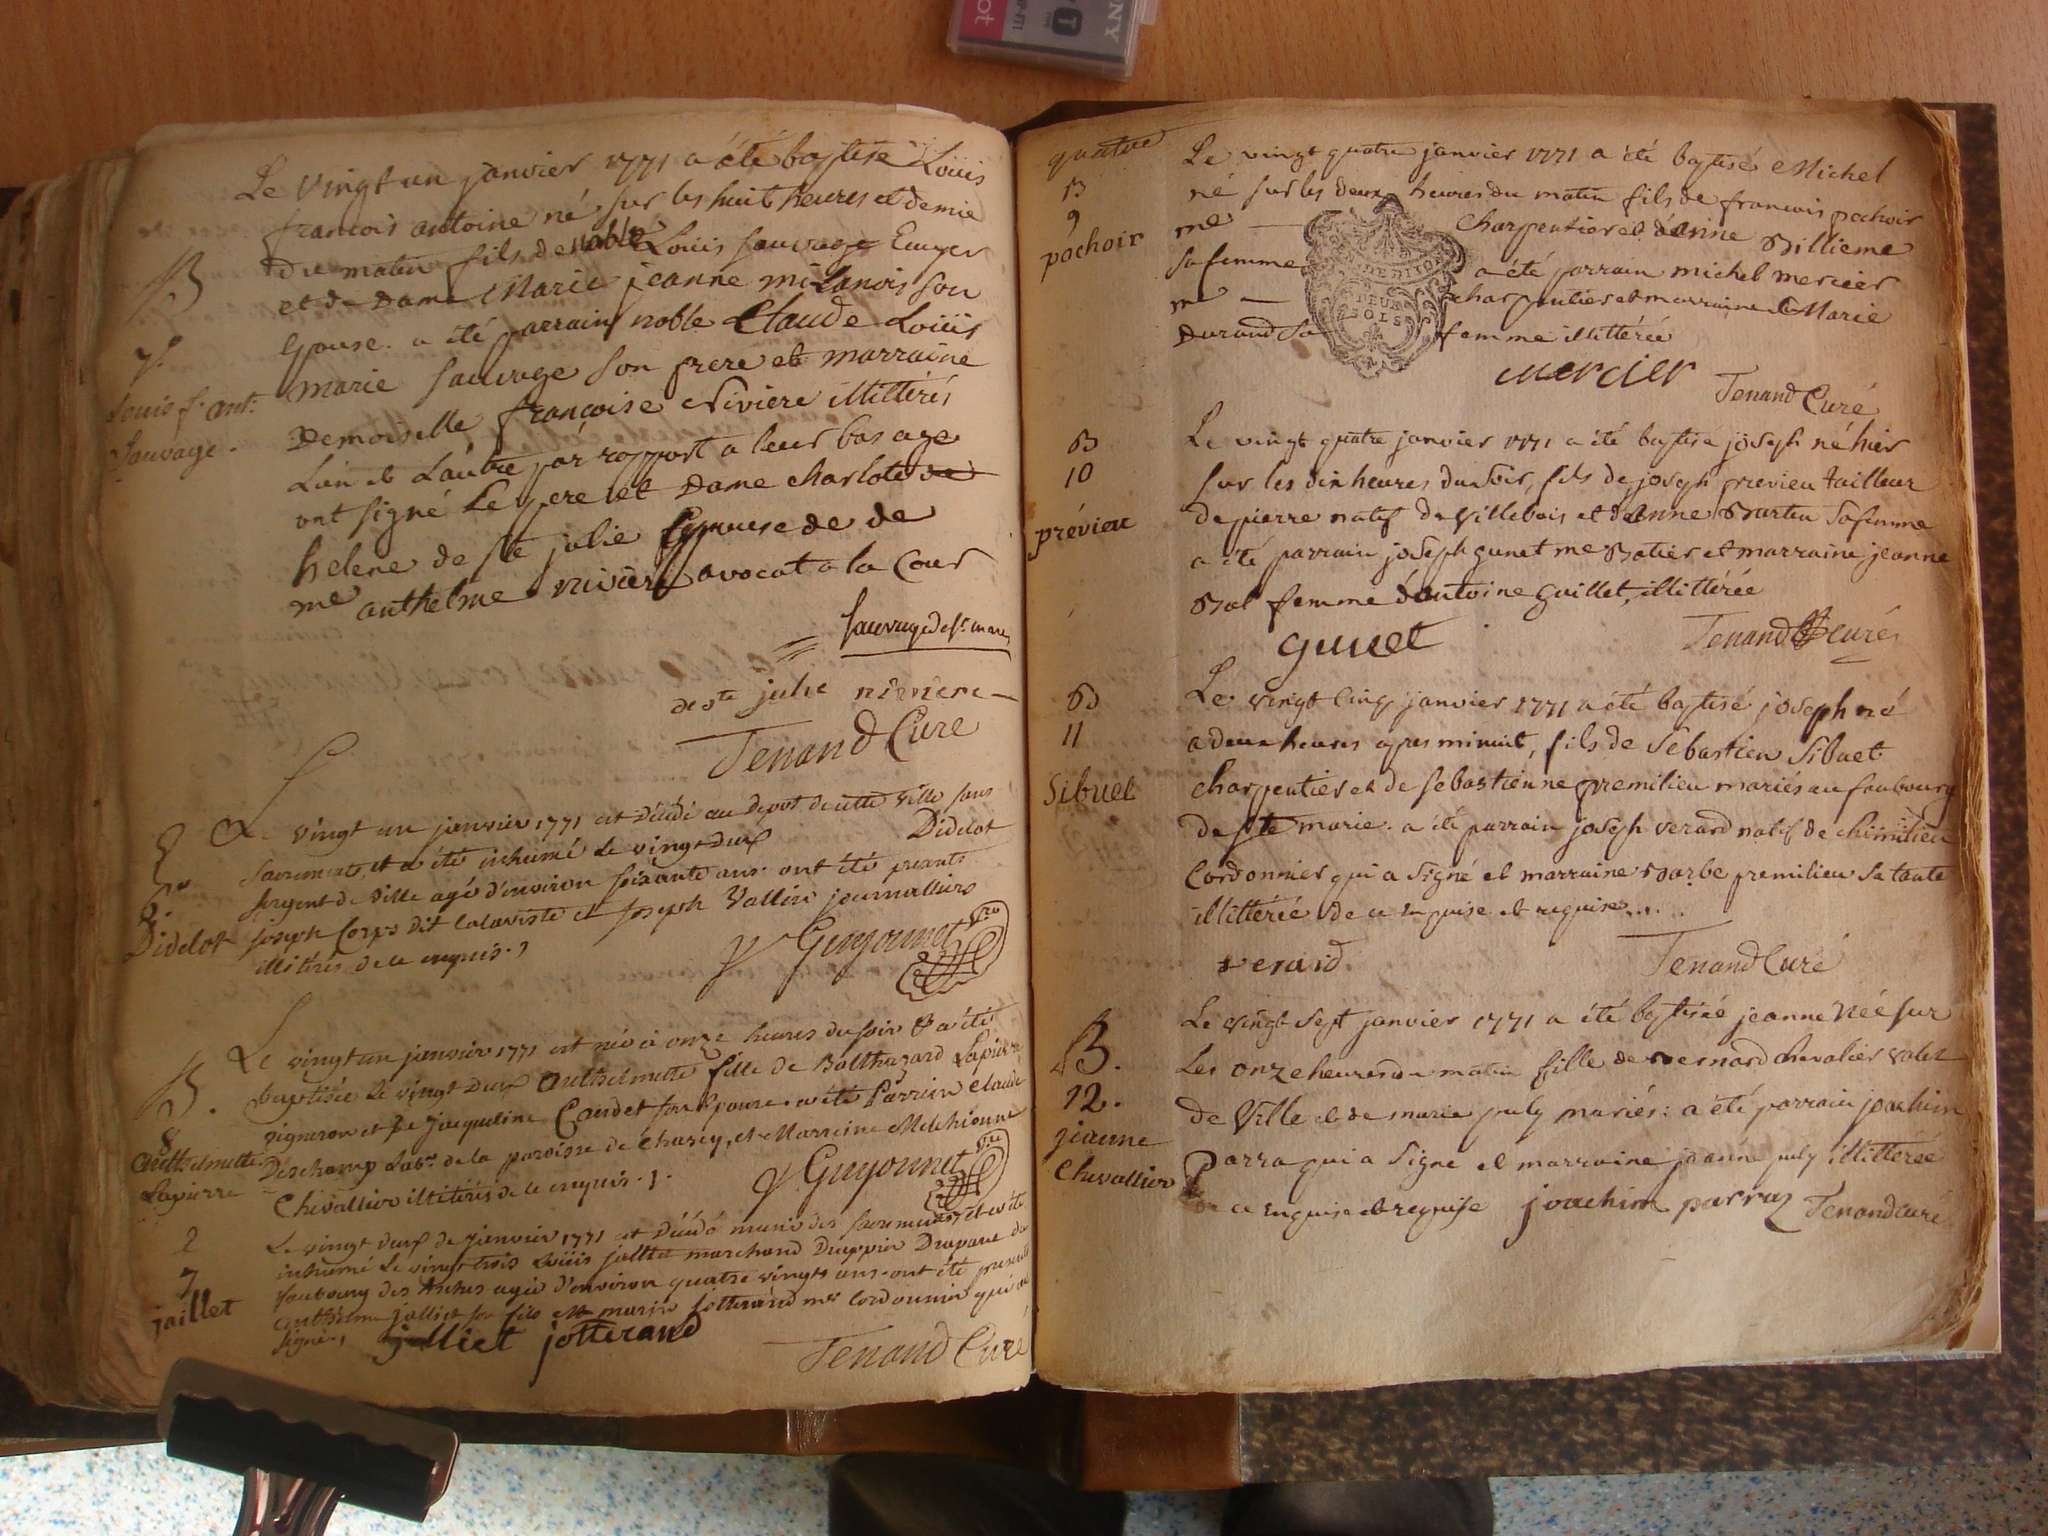 Le Vingt un janvier 1771 a été baptisé Louis
francois antoine né sur les huit heures et demie
du matin fils de noble Louis sauvage Ecuyer
et de Dame Marie jeanne milanois son
Epouse. a été parrain noble Claude Louis
marie sauvage son frere et marraine
Demoiselle françoise Riviere illitérés
L'un et L'autre par rapport a leur bas age
ont signé Le pere et Dame charlote
helene de ste julie Epouse de
me anthelme rivière avocat a la Cour
B
7.
Louis f. ant.
Sauvage.
Sauvage de st.
de ste julie riviere
Tenand Curé
Le vingt un janvier 1771 est Décédé au depot de cette ville sans
sacrements, et a été inhumé le vingt deux Didelot
sergent de ville agé d'environ soixante ans. ont été présents
joseph Corps dit et joseph Vallin journalliers
illitérés de ce enquis.
6
Didelot
Guyonnet vre
Le vingt un janvier 1771 est née à onze heures du soir & a été
baptisée le vingt deux Anthelmette fille de Balthazard Lapierre
vigneron et de jacqueline Caudet son Epouse. a été Parrein Claude
Deschamp Labr. de la paroisse de Charey, et Marreine Melchionne
Chevallier illitérés de ce enquis.
B.
8
Anthelmette
Lapierre
Guyonnet vre
Le vingt deux de janvier 1771 est Décédé muni des sacrements, et a été
inhumé le vingt trois Louis jalliet marchand Drappier Drapant du
faubourg des agé d'environ quatre vingts ans. ont été présents
anthelme jalliet son fils et marin jotterand me Cordonnier qui ont
signé.
2
7
jaillet
jalliet jotterand
Tenand Curé
quatre
Le vingt quatre janvier 1771 a été baptisé Michel
né sur les deux heures du matin fils de francois pochoir
me charpentier et d'Anne Billieme
sa femme a été parrain michel mercier
me charpentier et marraine Marie
Durand sa femme illittérée
B
9
pochoir
DEUX
SOLS
mercier
Tenand Curé
Le vingt quatre janvier 1771 a été baptisé joseph né hier
sur les dix heures du soir, fils de joseph prévieu tailleur
de pierre natif de Villebois et d'Anne Martin sa femme
a été parrain joseph gunet me Batier et marraine jeanne
Bal femme d'antoine Guillet, illittérée
B
10
prévieu
gunet
Tenand Curé
Le vingt Cinq janvier 1771 a été baptisé joseph né
a deux heures apres minuit, fils de Sébastien Sibuet
charpentier et de sebastienne premilieu mariés au faubourg
de ste marie. a été parrain joseph verard natif de chimilieu
Cordonnier qui a signé et marraine Barbe premilieu sa tante
illittérée de ce enquise et requise....
B
11
Sibuet
verard
Tenand Curé
Le vingt sept janvier 1771 a été baptisée jeanne née sur
Les onze heures du matin fille de Bernard chevalier valet
de Ville et de marie puly mariés: a été parrain joachim
Parra qui a signé et marraine jeanne puly illittérée
de ce enquise et requise joachim parraz Tenand Curé
B.
12.
jeanne
Chevallier